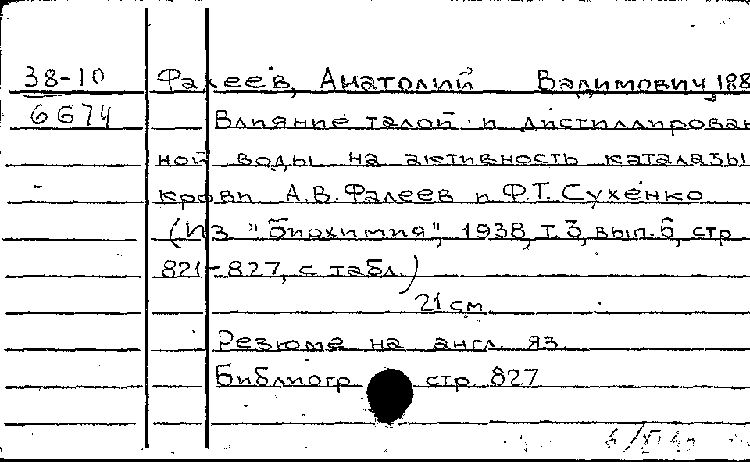 38-10 Фалеев, Анатолий Вадимович, 188
6674 Влияние талой и дистиллирован
ной воды на активность каталазы
крови А.В. Фалеев и Ф.Т. Сухенко
(Из "Биохимия", 1938, т. 3, вып. 6, стр
821-827, с табл.)
21 см
Резюме на англ. яз.
Библиогр стр 827